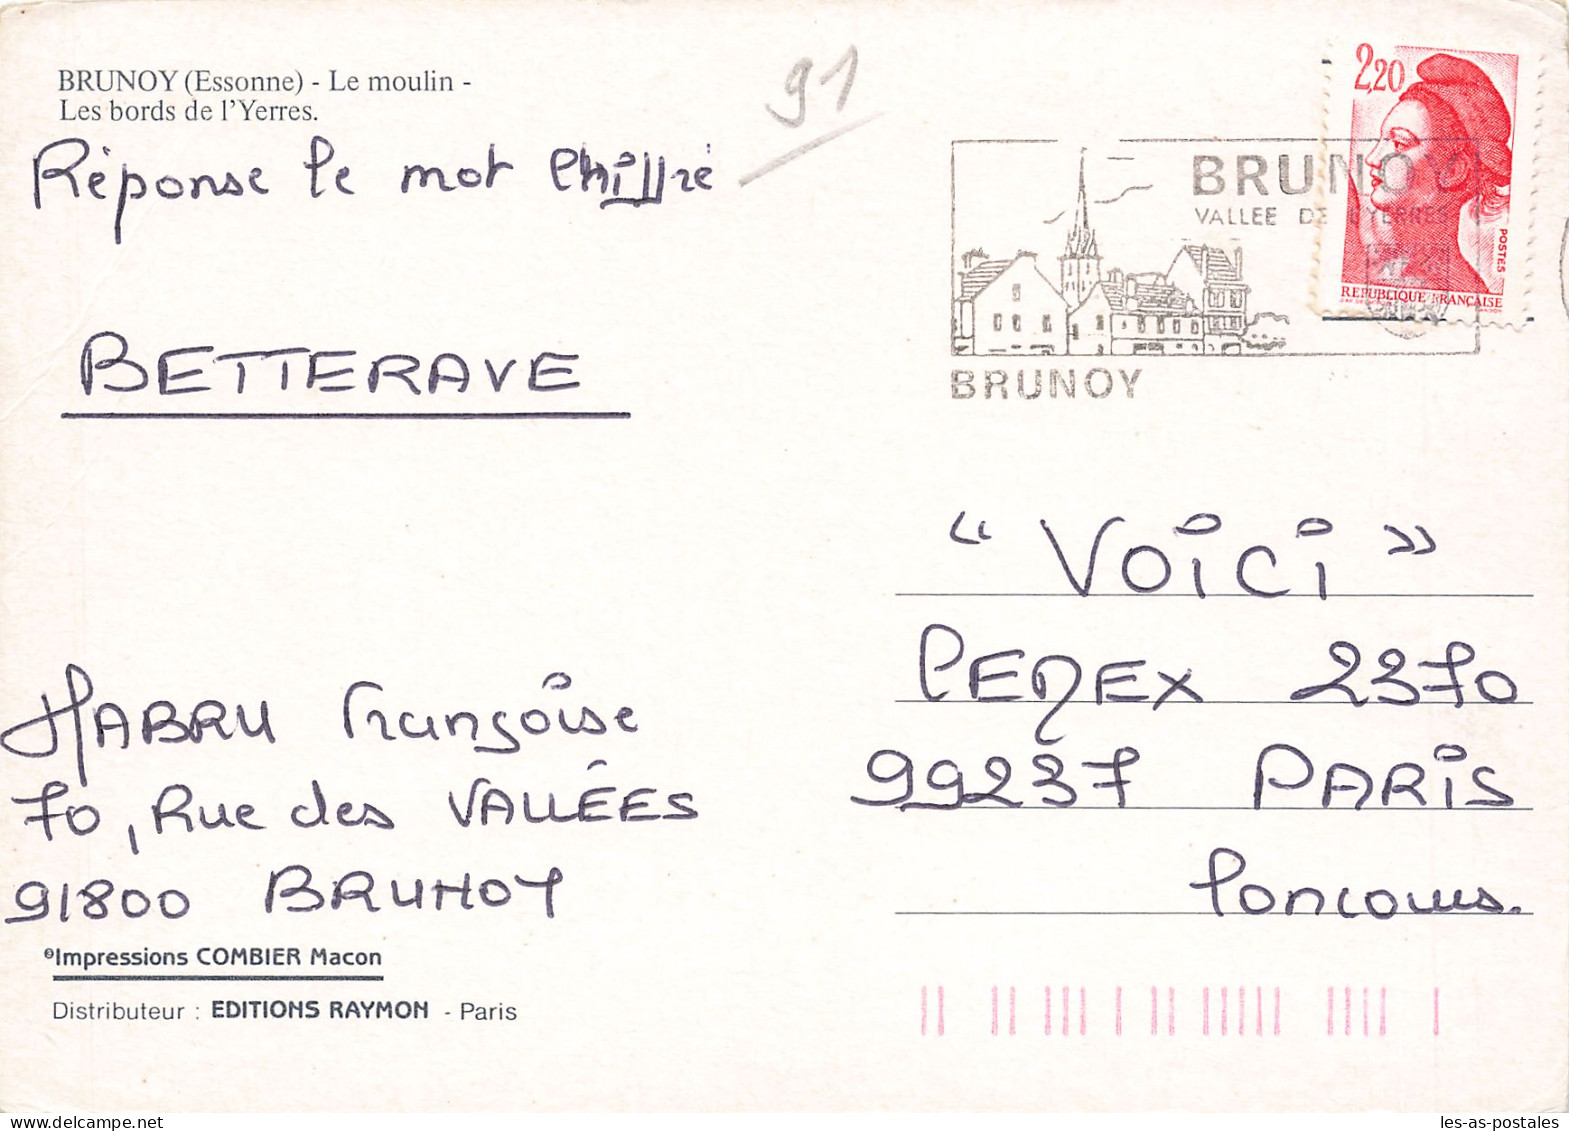 BRUNOY (Essonne) - Le moulin -
Les bords de l'Yerres.
91
Réponse le mot chiffré
BETTERAVE
2,20
POSTES
REPUBLIQUE FRANÇAISE
BRUNOY
VALLEE DE L'YERRES
BRUNOY
"VOiCi"
CEDEX 2370
99237 PARiS
Concours.
HABRU Françoise
70, Rue des VALLÉES
91800 BRUNOY
Impressions COMBIER Macon
Distributeur : EDITIONS RAYMON - Paris
les-as-postales